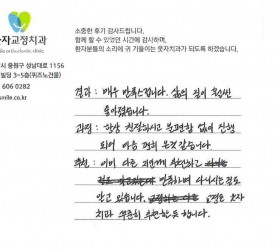 웃자교정치과
소중한 후기 감사드립니다.
함께 할 수 있었던 시간에 감사하며,
환자분들의 소리에 귀 기울이는 웃자치과가 되도록 하겠습니다.
시 중원구 성남대로 1156
빌딩 3~5층(위즈노건물)
606 0282
smile.co.kr
결과 : 매우 만족스럽니다. 삶의 질이 훨씬
좋아졌습니다.
과정 : 항상 친절하시고 불편함 없이 진행
되어 마음 편히 온것 같습니다.
추천 : 이미 다른 지인께 추천하고
만족하며 다니시는걸로
알고 있습니다. 교정은 웃자
치과 꾸준히 추천한듯 합니다.